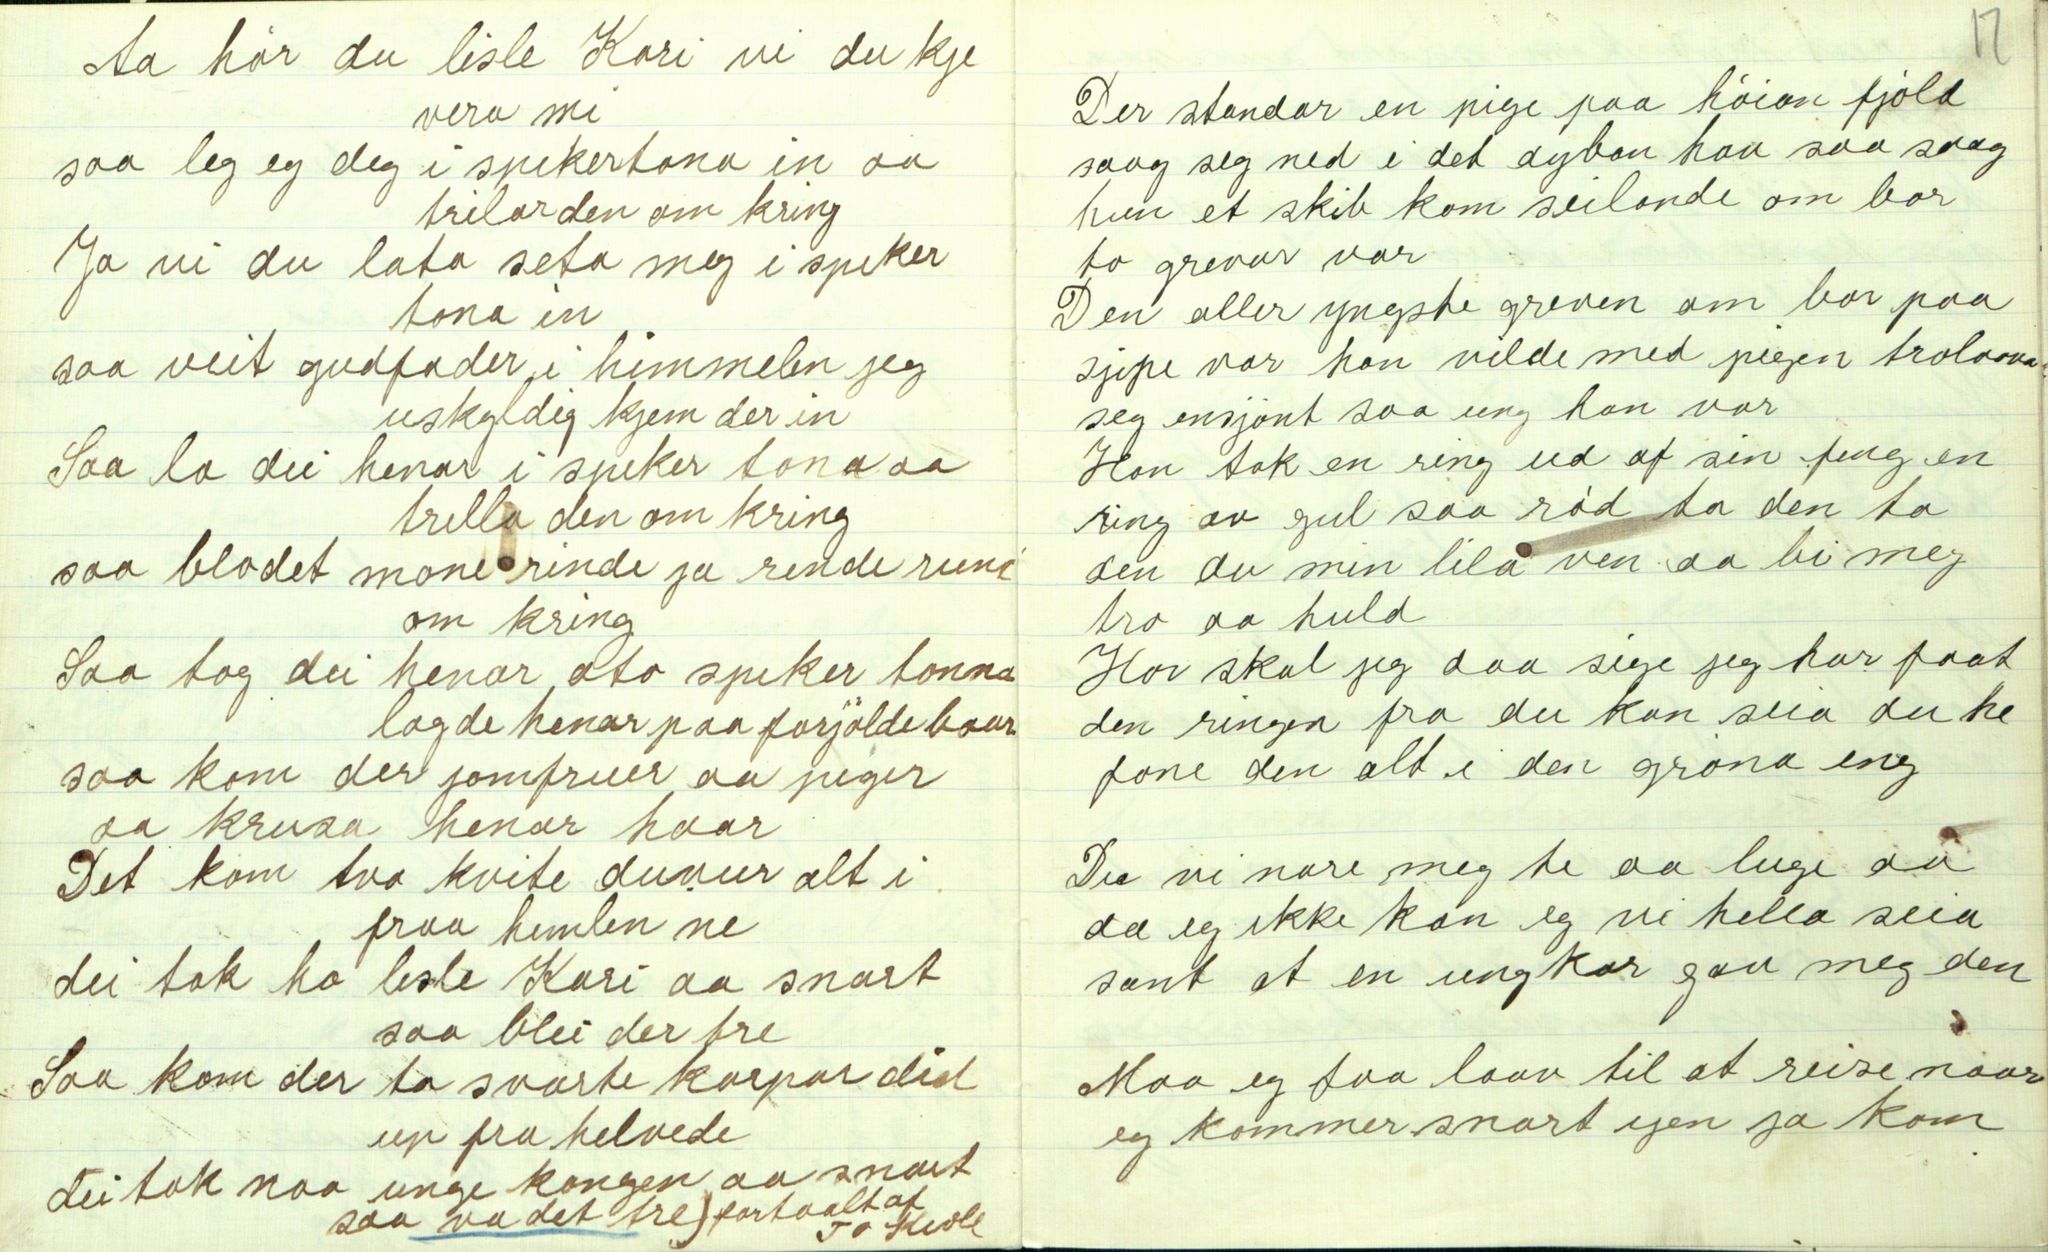 Aa hör du lisle Kari vi du kje
vera mi
saa leg eg deg i spikertona in aa
trilar den om kring
Ja vi du lata seta meg i spiker
tona in
saa veit gudfader i himmelen jeg
uskyldig kjem der in
Saa la dei henar i spiker tona aa
trilla den om kring
saa blodet mone rinde ja rende rund
om kring
Saa tog dei henar ato spiker tonna
lagde henar paa forjölde baar
saa kom der jomfruer aa piger
aa krusa henar haar
Det kom tvo kvite duvur alt i
fraa himlen ne
dei tok ho lisle Kari aa snart
saa blei der tre
Saa kom der to svarte karpar did
up fra helvede
dei tok naa unge kongen aa snart
saa va det tre) fortaalt af
17
Der standar en pige paa höian fjöld
saag seg ned i det dyban hav saa saag
hun et skib kom seilande om bor
to grevar var
Den aller yngste greven om bor paa
sjipe var han vilde med pigen trolaava
seg ensjönt saa ung han var
Han tok en ring ud af sin fing en
ring av gul saa röd ta den ta
den du min lila ven aa bi meg
tro aa huld
Hor skal jeg daa sige jeg har faat
den ringen fra du kan seia du he
fone den alt i den gröna eng
Du vi nare meg te aa luge aa
da eg ikke kan eg vi hella seia
sant at en ungkar gav meg den
Maa eg faa laav til at reise naar
eg kommer snart igen ja kom